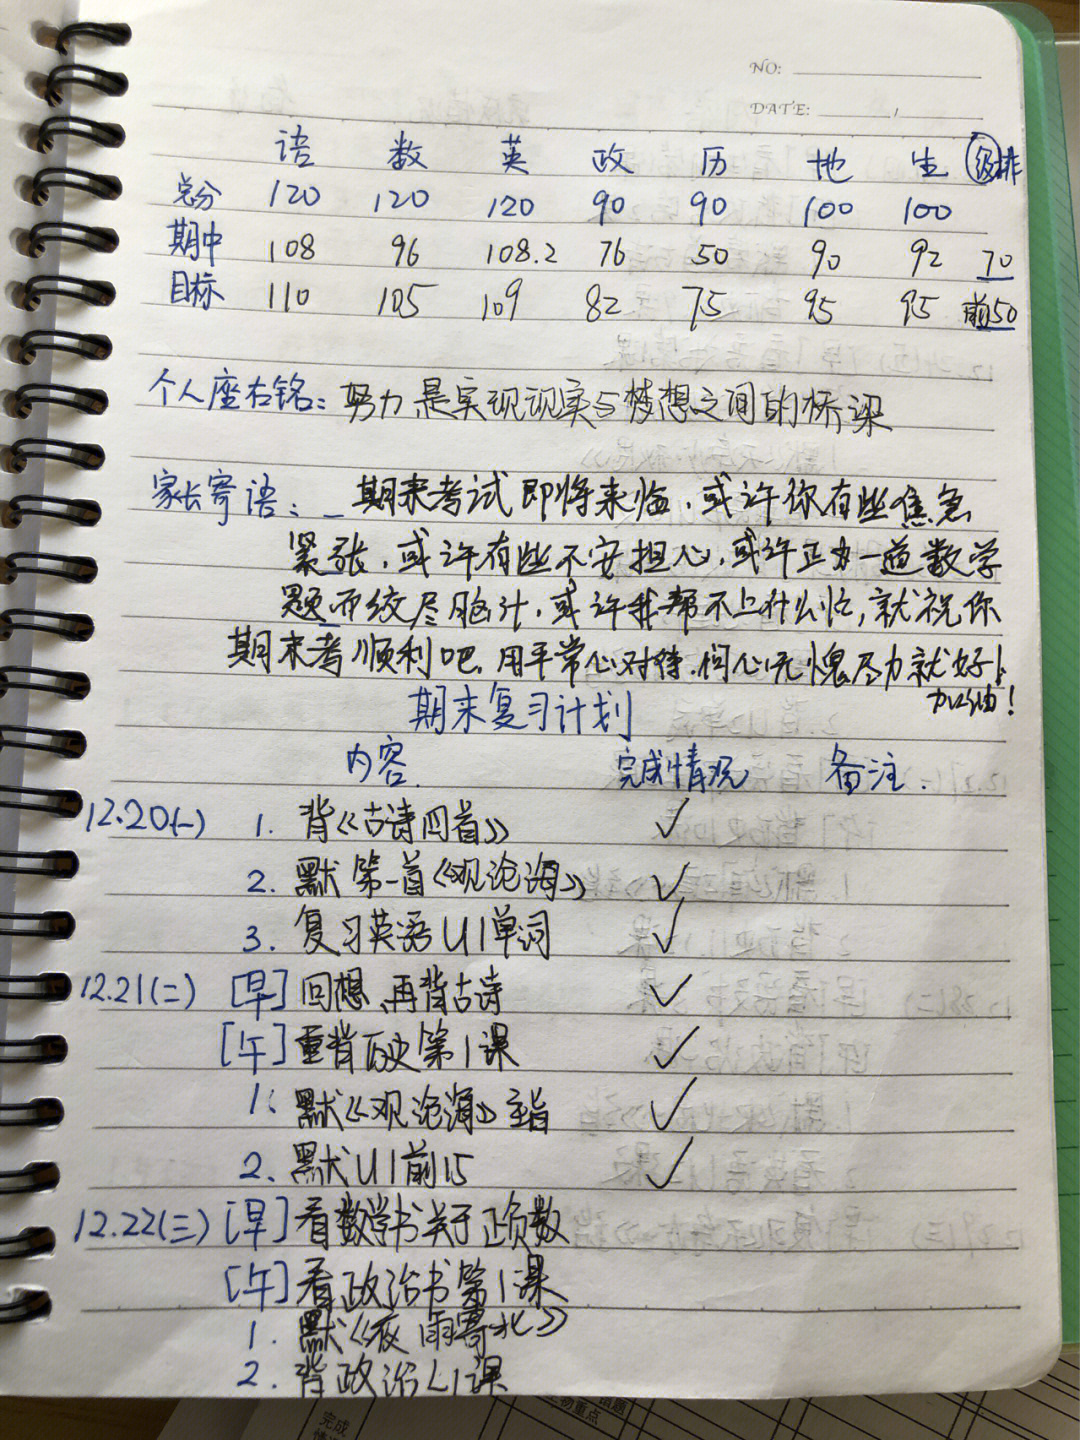 NO:
DATE:
语 数 英 政 历 地 生 级排
总分 120 120 120 90 90 100 100
期中 108 96 108.2 76 50 90 92 70
目标 110 105 109 82 75 95 95 前50
个人座右铭：努力是实现现实与梦想之间的桥梁
家长寄语：期末考试即将来临，或许你有些焦急
紧张，或许有些不安担心，或许正为一道数学
题而绞尽脑汁，或许我帮不上什么忙，就祝你
期末考顺利吧，用平常心对待，问心无愧尽力就好！
加油！
期末复习计划
内容 完成情况 备注
12.20(一) 1. 背《古诗四首》 ✓
2. 默第一首《观沧海》 ✓
3. 复习英语U1单词 ✓
12.21(二) [早] 回想、再背古诗 ✓
[午] 重背历史第1课 ✓
1. 默《观沧海》主旨 ✓
2. 默U1前15 ✓
12.22(三) [早] 看数学书关于正负数
[午] 看政治书第1课
1. 默《夜雨寄北》
2. 背政治L1课
完成
物重点
话题